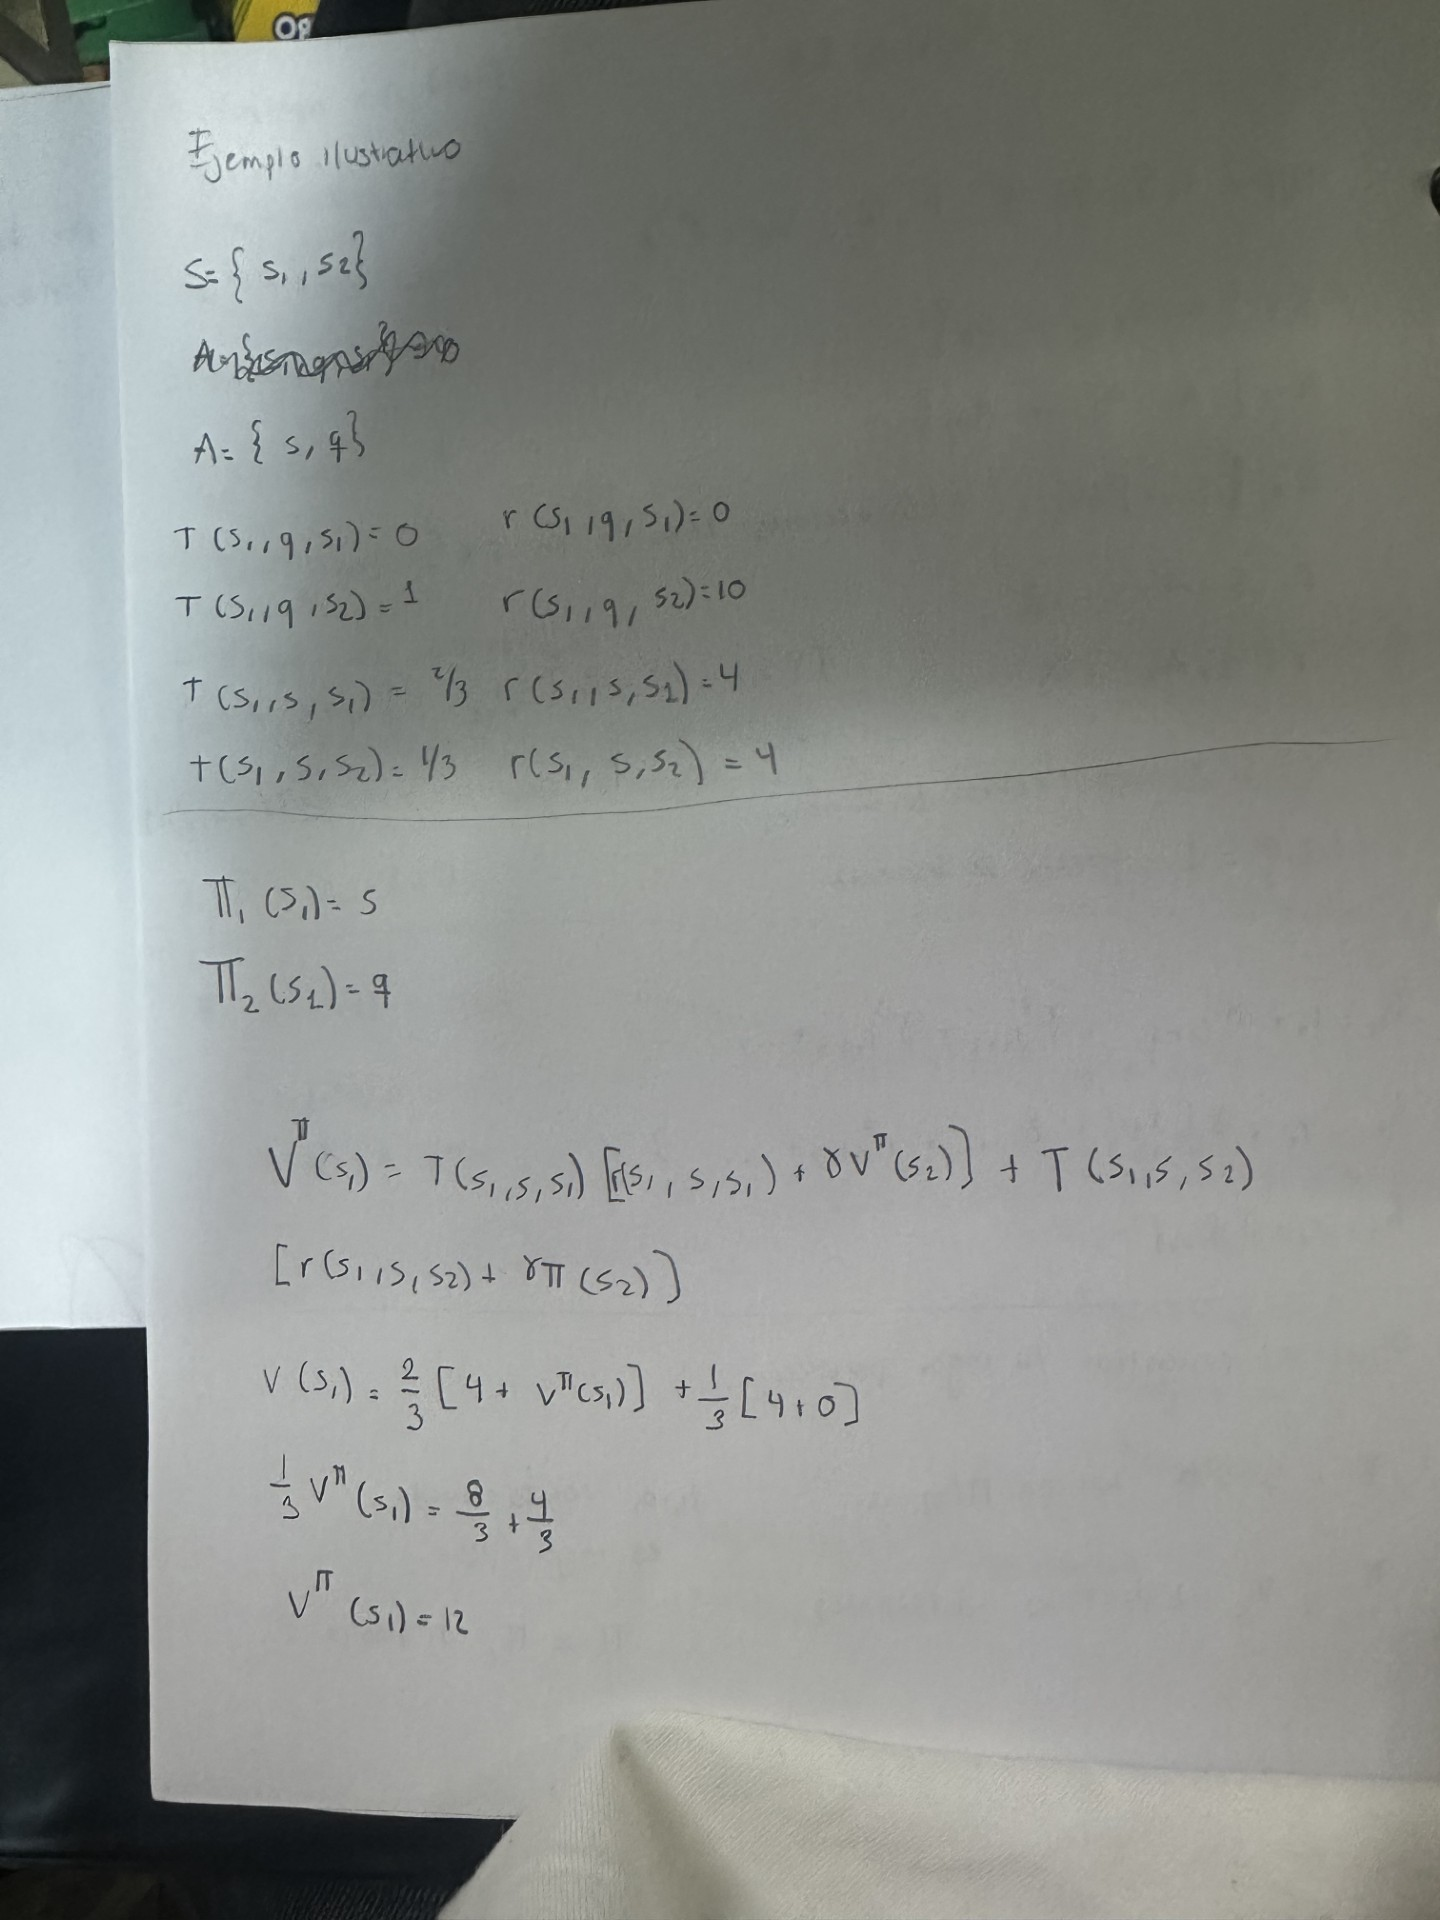 Og
Ejemplo ilustrativo
S={ s₁, s₂}
A={ s, q}
T (s₁, q, s₁)= 0 r (s₁, q, s₁)= 0
T (s₁, q, s₂) = 1 r(s₁, q, s₂)=10
T (s₁, s, s₁) = 2/3 r (s₁, s, s₁)=4
t(s₁, s, s₂)= 1/3 r(s₁, s, s₂) = 4
Π₁ (s₁)= s
Π₂ (s₁)= q
V^π(s₁) = T(s₁, s, s₁) [r(s₁, s, s₁) + γV^π(s₂)] + T (s₁, s, s₂)
[r(s₁, s, s₂) + γπ (s₂)]
V (s₁) = 2/3 [4 + V^π(s₁)] + 1/3 [4+0]
1/3 V^π (s₁) = 8/3 + 4/3
V^π (s₁) = 12